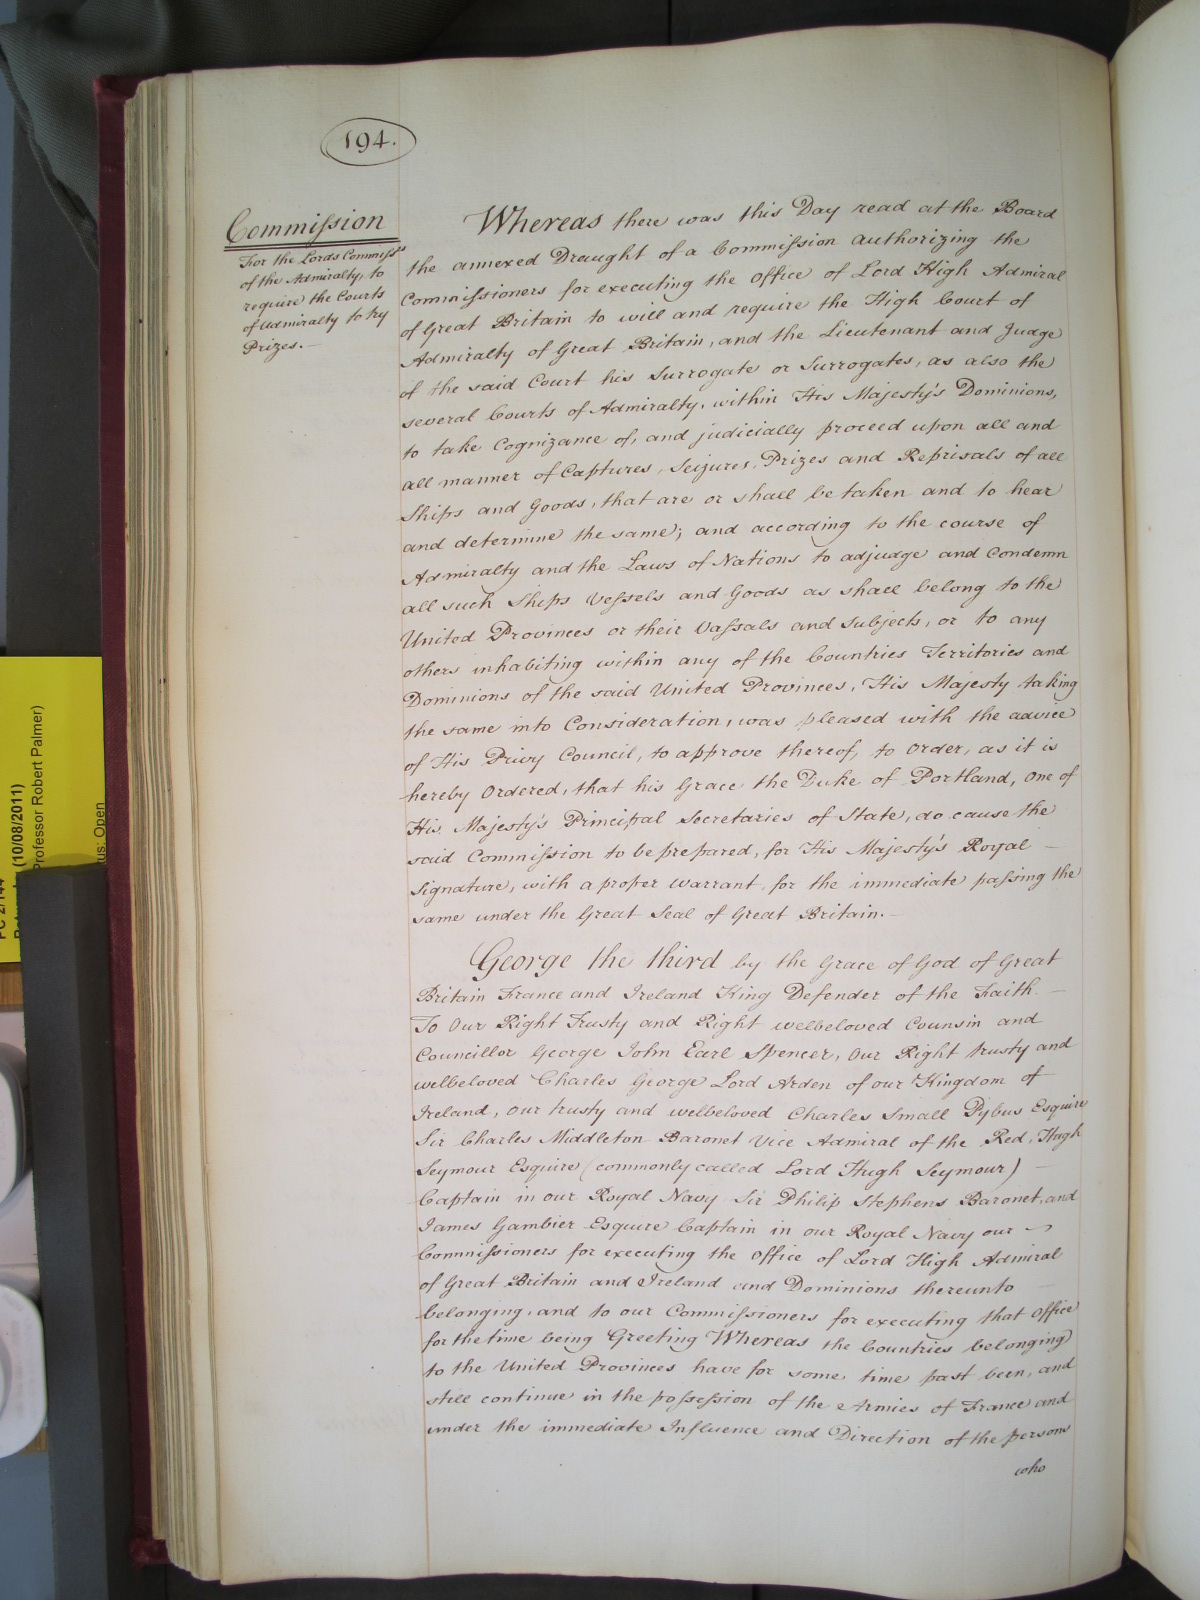 194.
Commission
For the Lords Commiss.rs
of the Admiralty, to
require the Courts
of Admiralty to try
Prizes.—
Whereas there was this Day read at the Board
the annexed Draught of a Commission authorizing the
Commissioners for executing the Office of Lord High Admiral
of Great Britain to will and require the High Court of
Admiralty of Great Britain, and the Lieutenant and Judge
of the said Court his Surrogate or Surrogates, as also the
several Courts of Admiralty, within His Majesty's Dominions,
to take Cognizance of, and judicially proceed upon all and
all manner of Captures, Seizures, Prizes and Reprisals of all
Ships and Goods, that are or shall be taken and to hear
and determine the same; and according to the course of
Admiralty and the Laws of Nations to adjudge and Condemn
all such Ships Vessels and Goods as shall belong to the
United Provinces or their Vassals and Subjects, or to any
others inhabiting within any of the Countries Territories and
Dominions of the said United Provinces, His Majesty taking
the same into Consideration, was pleased with the advice
of His Privy Council, to approve thereof, to Order, as it is
hereby Ordered, that his Grace the Duke of Portland, One of
His Majesty's Principal Secretaries of State, do cause the
said Commission to be prepared, for His Majesty's Royal —
Signature, with a proper Warrant for the immediate passing the
same under the Great Seal of Great Britain.—
George the third by the Grace of God of Great
Britain France and Ireland King Defender of the Faith —
To Our Right Trusty and Right welbeloved Counsin and
Councillor George John Earl Spencer, Our Right trusty and
welbeloved Charles George Lord Arden of our Kingdom of
Ireland, our trusty and welbeloved Charles Small Pybus Esquire
Sir Charles Middleton Baronet Vice Admiral of the Red, Hugh
Seymour Esquire (commonly called Lord Hugh Seymour) —
Captain in our Royal Navy Sir Philip Stephens Baronet, and
James Gambier Esquire Captain in our Royal Navy our
Commissioners for executing the Office of Lord High Admiral
of Great Britain and Ireland and Dominions thereunto —
belonging, and to our Commissioners for executing that Office
for the time being Greeting Whereas the Countries belonging
to the United Provinces have for some time past been, and
still continue in the possession of the Armies of France and
under the immediate Influence and Direction of the persons
who
(10/08/2011)
Professor Robert Palmer)
Open